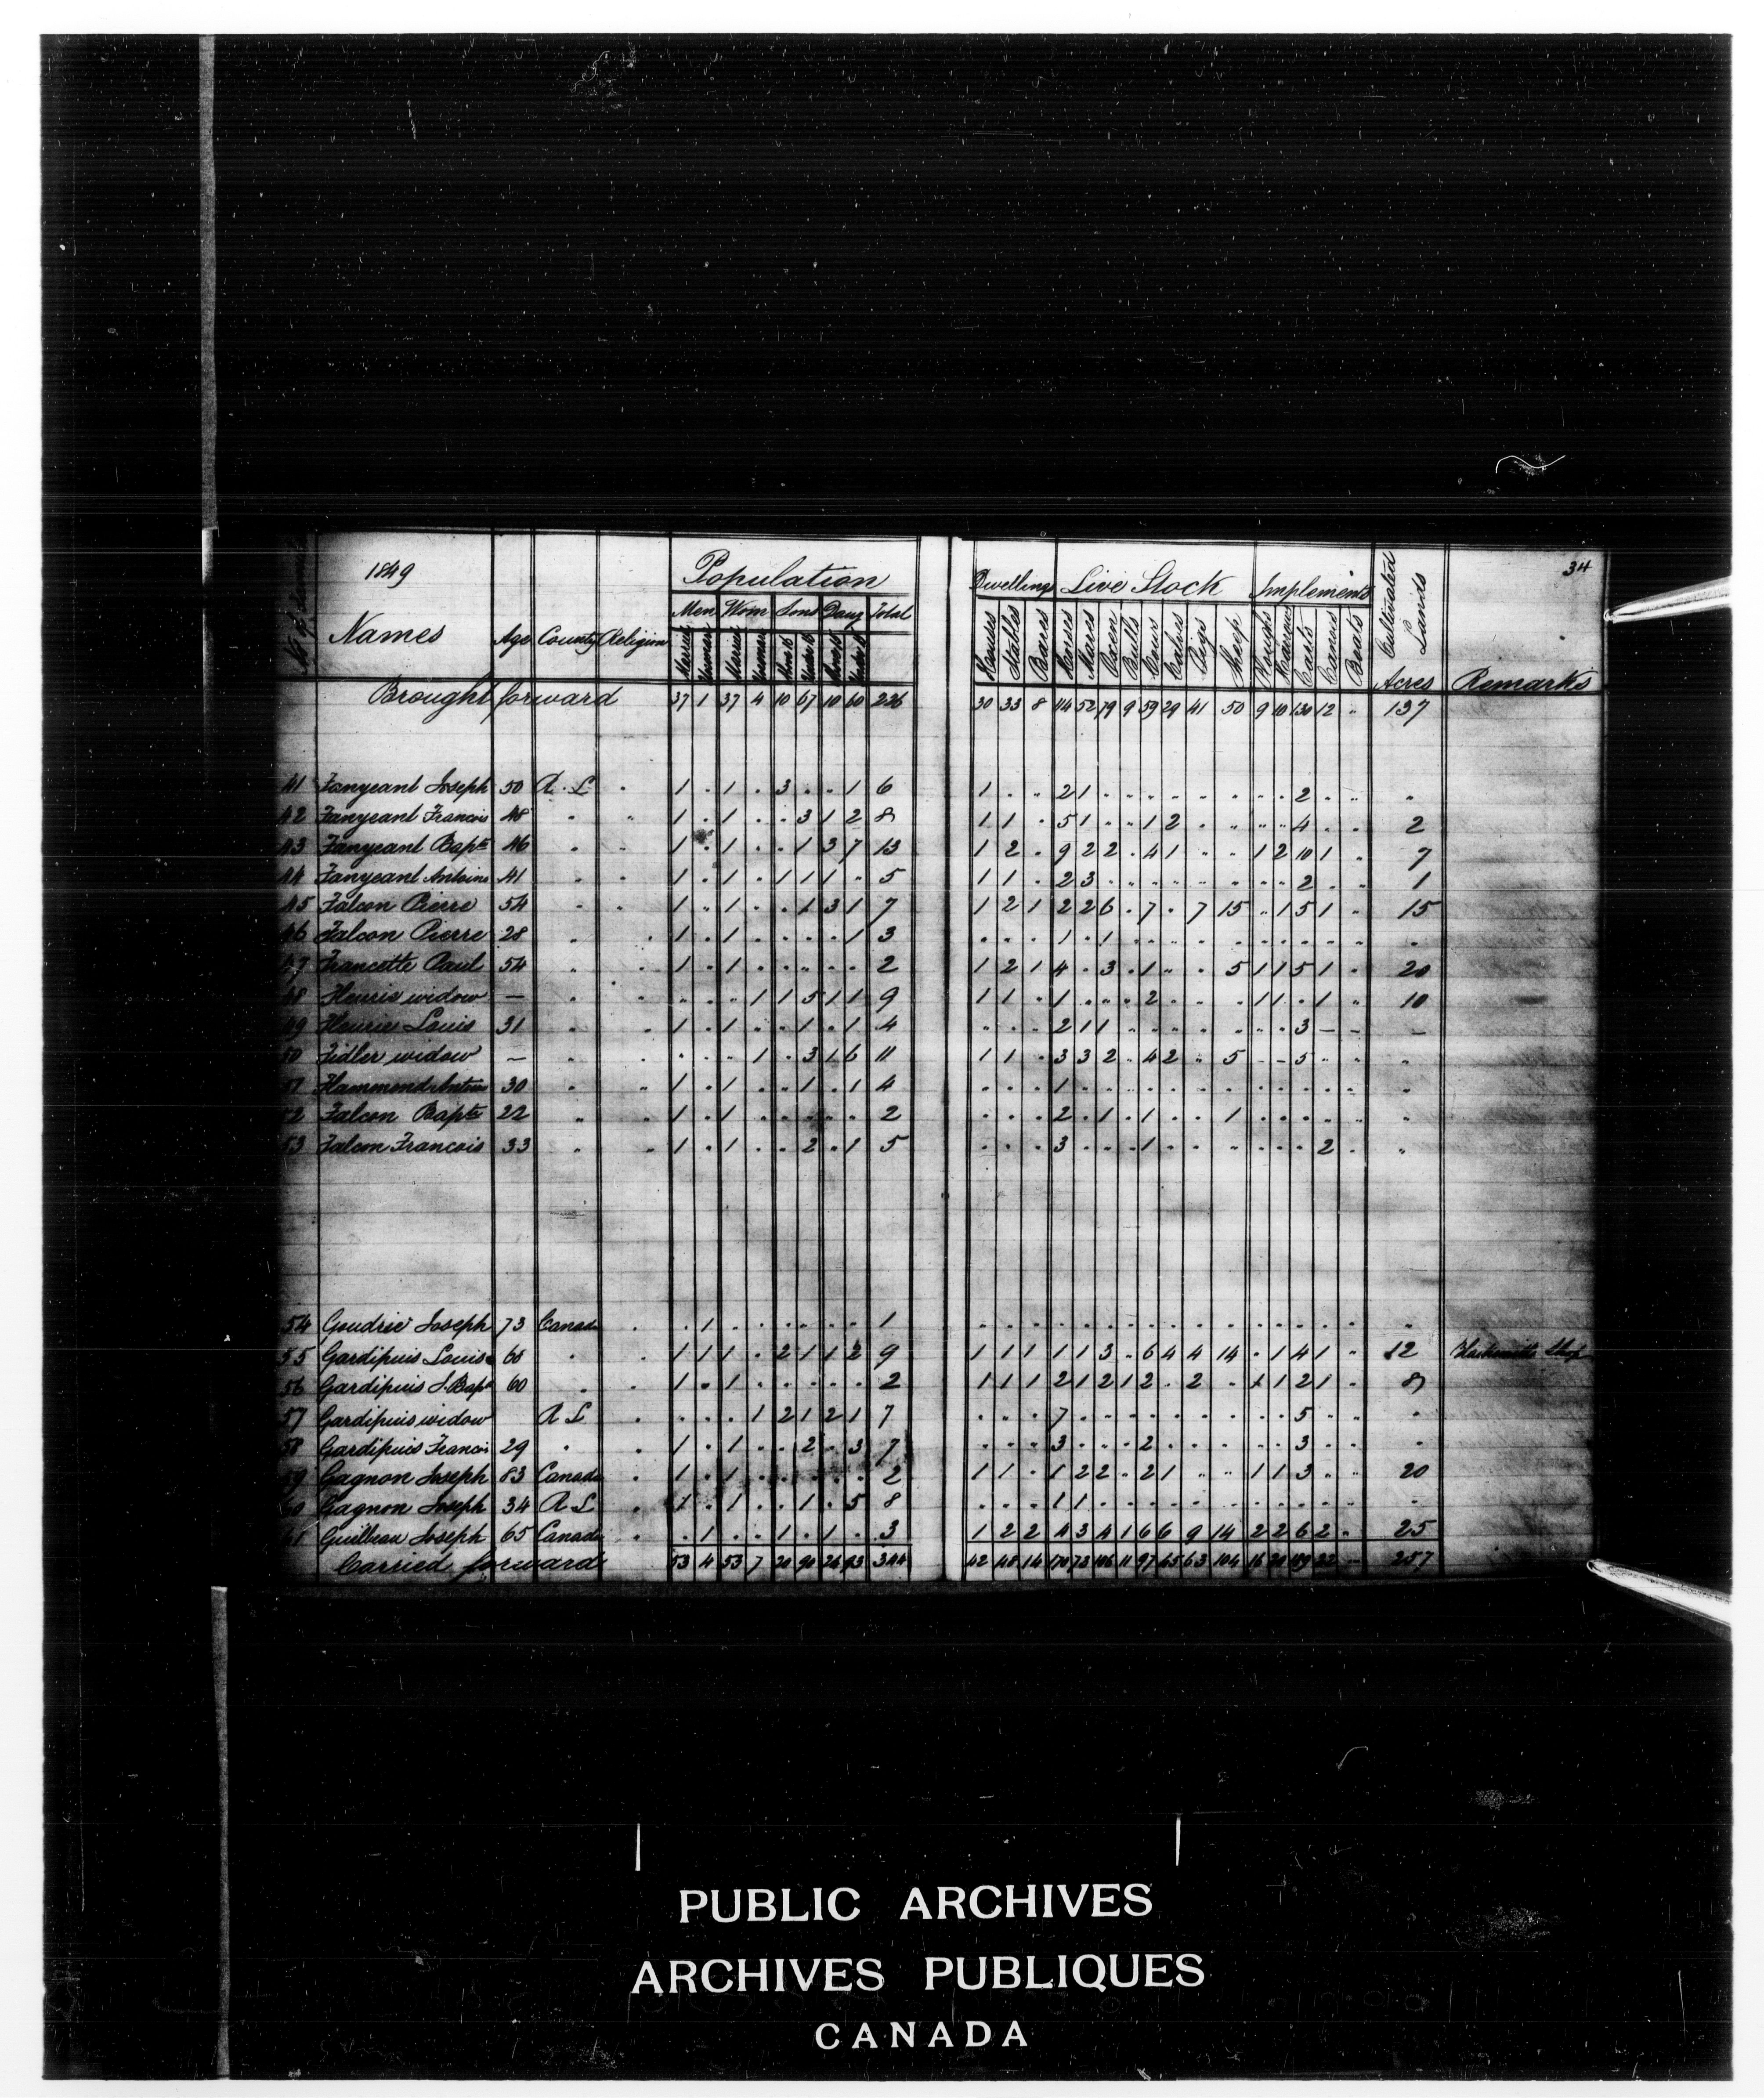 34
1849
Population
Dwellings Live Stock Implements Cultivated Lands
Men Wom Sons Daug Total
Names Age County Religion Married Married Houses Stables Barns Horses Mares Oxen Bulls Cows Calves Pigs Sheep Ploughs Harrows Carts Canoes Boats Acres Remarks
Brought forward 37 1 37 4 10 67 10 60 226 30 33 8 114 52 79 9 59 29 41 50 9 10 130 12 " 137
41 Fanyeant Joseph 50 R. L . 1 . 1 . 3 . . 1 6 1 . . 2 1 . . . . . . . . 2 . . "
42 Fanyeant Francois 48 " " 1 . 1 . . 3 1 2 8 1 1 . 5 1 . . 1 2 . . . . 4 . . 2
43 Fanyeant Bapte 46 " " 1 . 1 . . 1 3 7 13 1 2 . 9 2 2 . 4 1 . . 1 2 10 1 . 7
44 Fanyeant Antoine 41 " " 1 . 1 . 1 1 1 . 5 1 1 . 2 3 . . . . . . . . 2 . . 1
45 Falcon Pierre 54 " " 1 . 1 . . 1 3 1 7 1 2 1 2 2 6 . 7 . 7 15 . 1 5 1 . 15
46 Falcon Pierre 28 " " 1 . 1 . . . . 1 3 . . . 1 . 1 . . . . . . . . . . .
47 Francette Paul 54 " " 1 . 1 . . . . . 2 1 2 1 4 . 3 . 1 . . 5 1 1 5 1 . 20
48 Fleurie widow — " " . . . 1 1 5 1 1 9 1 1 . 1 . . . 2 . . . 1 1 . 1 . 10
49 Fleurie Louis 31 " " 1 . 1 . . 1 . 1 4 . . . 2 1 1 . . . . . . . 3 — — —
50 Fidler widow — " " . . . 1 . 3 1 6 11 1 1 . 3 3 2 . 4 2 . 5 . . 5 . . "
51 Hammond Antoine 30 " " 1 . 1 . . 1 . 1 4 . . . 1 . . . . . . . . . . . . .
52 Falcon Bapte 22 " " 1 . 1 . . . . . 2 . . . 2 . 1 . 1 . . 1 . . . . . "
53 Falcon Francois 33 " " 1 . 1 . . 2 . 1 5 . . . 3 . . . 1 . . . . . . 2 . "
54 Goudrie Joseph 73 Canada . . 1 . . . . . . 1 . . . . . . . . . . . . . . . . .
55 Gardipuis Louis 60 " . 1 1 1 . 2 1 1 2 9 1 1 1 1 1 3 . 6 4 4 14 . 1 4 1 . 12 Blacksmith Shop
56 Gardipuis J. Bapt 60 . . 1 . 1 . . . . . 2 1 1 1 2 1 2 1 2 . 2 . 1 1 2 1 . 8
57 Gardipuis widow R L . . . . 1 2 1 2 1 7 . . . 7 . . . . . . . . . 5 . . .
58 Gardipuis Francois 29 " . 1 . 1 . . 2 . 3 7 . . . 3 . . . 2 . . . . . 3 . . .
59 Gagnon Joseph 83 Canada . 1 . 1 . . . . . 2 1 1 . 1 2 2 . 2 1 . . 1 1 3 . . 20
60 Gagnon Joseph 34 R. L . 1 . 1 . . 1 . 5 8 . . . 1 1 . . . . . . . . . . . .
61 Guilbeau Joseph 65 Canada . . 1 . . 1 . 1 . 3 1 2 2 4 3 4 1 6 6 9 14 2 2 6 2 . 25
Carried forward 53 4 53 7 20 90 26 93 344 42 48 14 170 73 106 11 97 45 63 104 16 20 189 22 — 257
PUBLIC ARCHIVES
ARCHIVES PUBLIQUES
CANADA